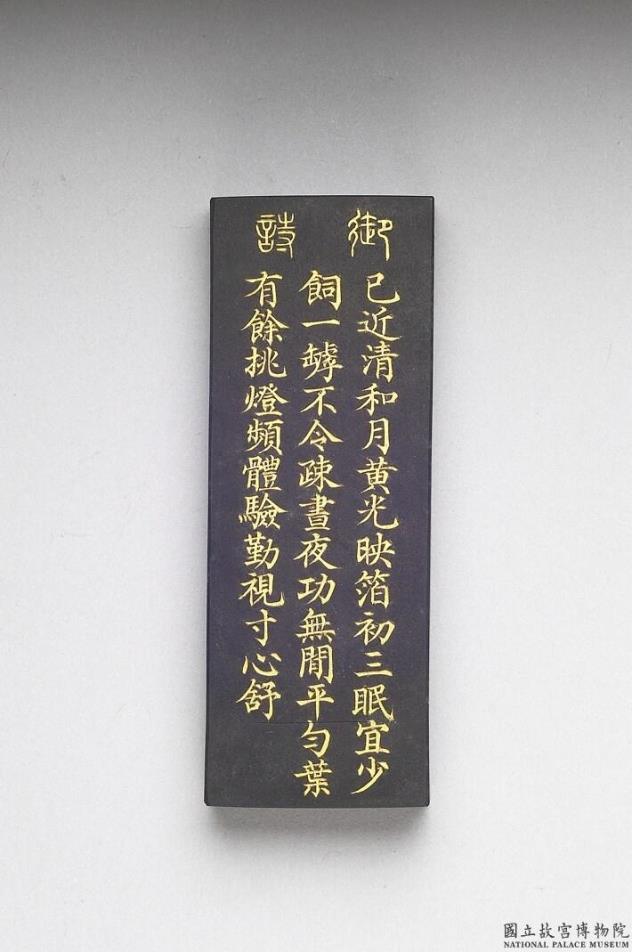 御詩
已近清和月黃光映箔初三眠宜少
飼一罅不令疎晝夜功無間平勻葉
有餘挑燈頻體驗勤視寸心舒
國立故宮博物院
NATIONAL PALACE MUSEUM